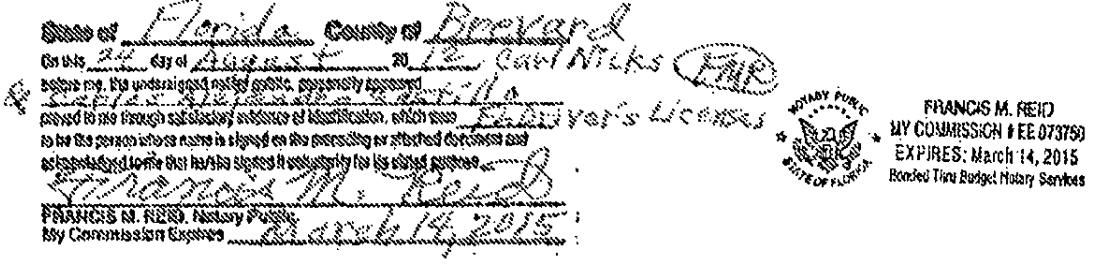 State of Florida County of Brevard
On this 24 day of August 20 12 Carl Nicks FMR
before me, the undersigned notary public, personally appeared
& Carlos Alejandro Castillo
proved to me through satisfactory evidence of identification, which was FL Driver's Licenses
to be the person whose name is signed on the preceding or attached document and
acknowledged to me that he/she signed it voluntarily for its stated purpose.
Francis M. Reid
FRANCIS M. REID, Notary Public
My Commission Expires March 14, 2015
NOTARY PUBLIC
STATE OF FLORIDA
FRANCIS M. REID
MY COMMISSION # EE 073750
EXPIRES: March 14, 2015
Bonded Thru Budget Notary Services